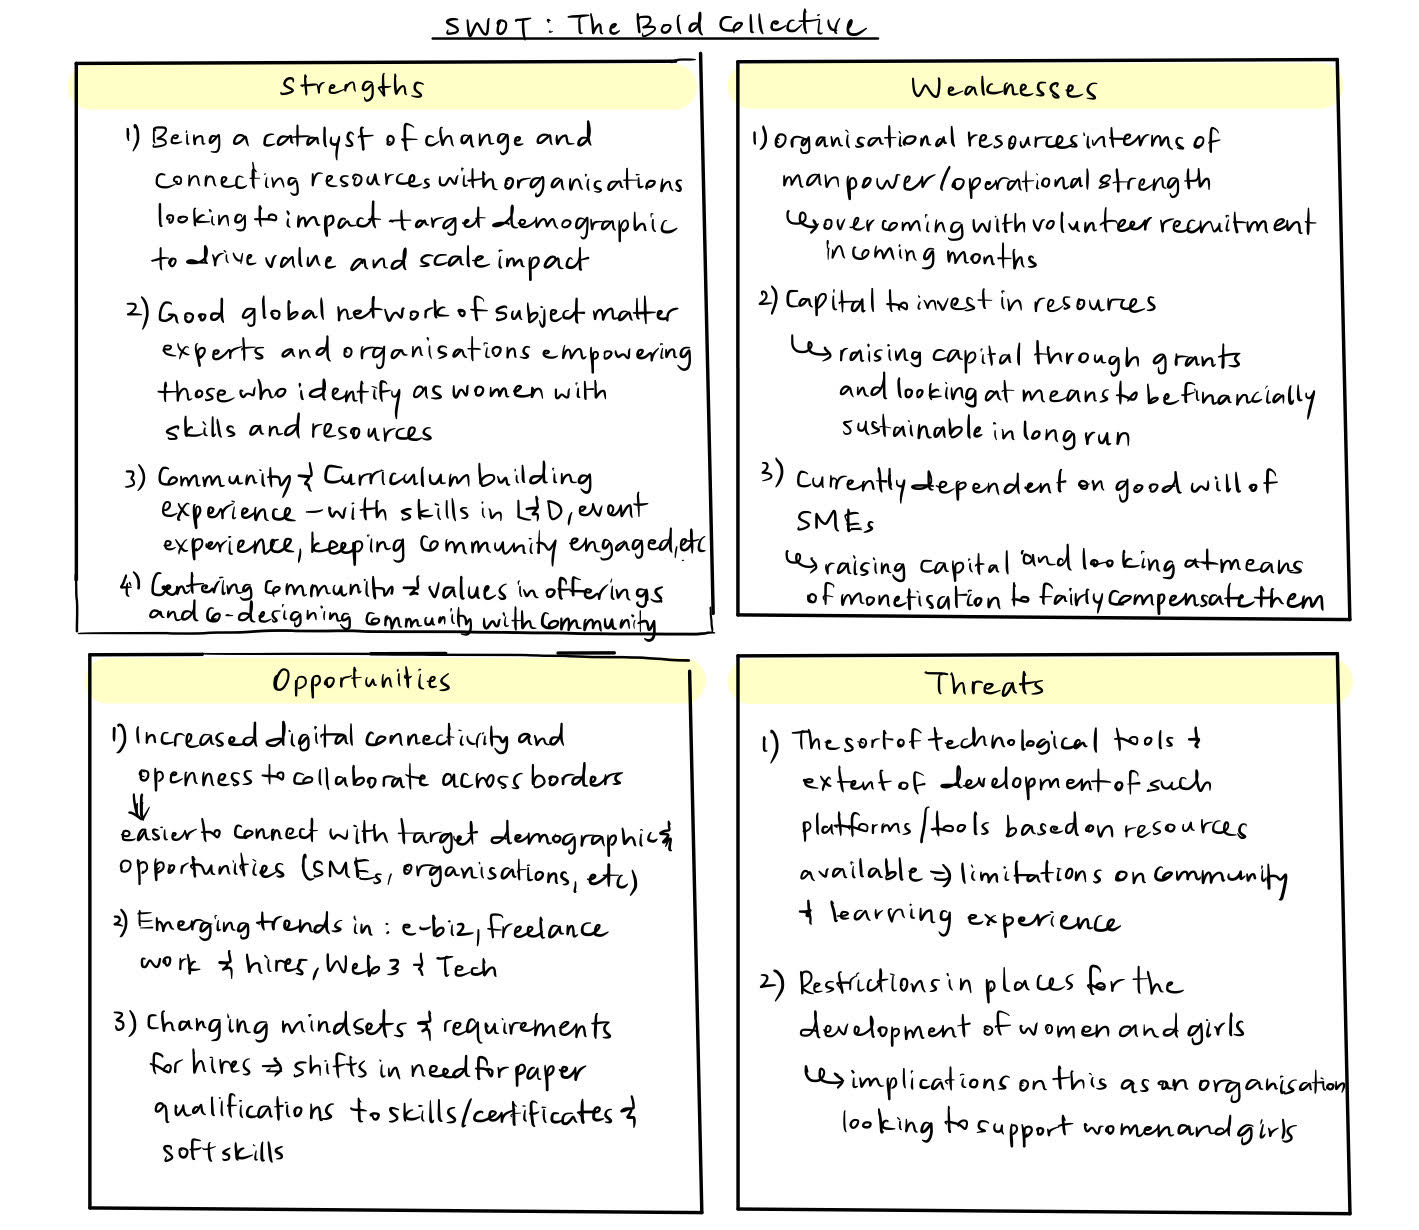 SWOT : The Bold Collective
Strengths
1) Being a catalyst of change and
connecting resources with organisations
looking to impact target demographic
to drive value and scale impact
2) Good global network of subject matter
experts and organisations empowering
those who identify as women with
skills and resources
3) Community & Curriculum building
experience - with skills in L&D, event
experience, keeping community engaged, etc
4) Centering community & values in offerings
and co-designing community with community
Weaknesses
1) Organisational resources interms of
manpower/operational strength
↳ overcoming with volunteer recruitment
in coming months
2) Capital to invest in resources
↳ raising capital through grants
and looking at means to be financially
sustainable in long run
3) Currently dependent on good will of
SMEs
↳ raising capital and looking at means
of monetisation to fairly compensate them
Opportunities
1) Increased digital connectivity and
openness to collaborate across borders
⇓
easier to connect with target demographic &
opportunities (SMEs, organisations, etc)
2) Emerging trends in : e-biz, freelance
work & hires, Web 3 & Tech
3) Changing mindsets & requirements
for hires ⇒ shifts in need for paper
qualifications to skills/certificates &
soft skills
Threats
1) The sort of technological tools &
extent of development of such
platforms/tools based on resources
available ⇒ limitations on community
& learning experience
2) Restrictions in places for the
development of women and girls
↳ implications on this as an organisation
looking to support women and girls